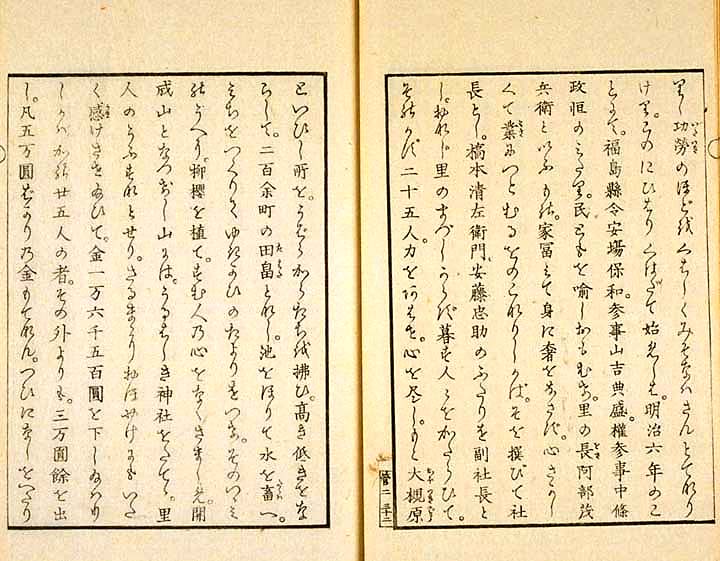 功勞のほどをくはしくみそなはさんとてなり
けり。このにひはりくはだて始めしは。明治六年のこ
とにて。福島縣令安場保和。参事山吉典盛。權参事中條
政恒のみたり。民どもを喻しおもむけ。里の長阿部茂
兵衛といふもの。家冨みて身に奢をなさず。心さかし
くて業につとむるをのこなりしかば。そを撰びて社
長とし。橋本清左衛門。安藤忠助のふたりを副社長と
し。おなじ里のまづしからず暮す人々をかたらひて。
そのかず二十五人力をあはせ。心を尽し。もと大槻原
といひし所を。うばらからたちを拂ひ。高き低きをな
らして。二百余町の田畠となし。池をほりて水を畜へ。
みちをつくりて。ゆきかひのたよりをつけ。そのつつみ
のうへに。柳櫻を植て。すむ人乃心をなぐさましめ。開
成山となづけし山には。うるはしき神社をたてて。里
人のうぶすなとせり。おほやけにもいた
く感けさせ給ひて。金一万六千五百圓を下し給はり
しかば。かの廿五人の者。その外よりも。三万圓餘を出
し。凡五万圓ばかり乃金もてなん。つひになしをへたり